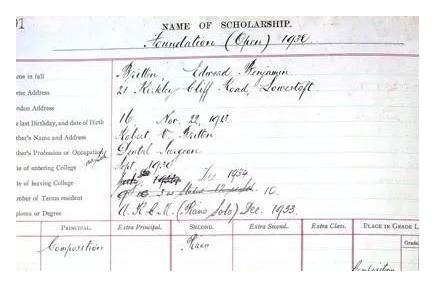 01
NAME OF SCHOLARSHIP.
Foundation (Open) 1930
ame in full Britten, Edward Benjamin
me Address 21 Kirkley Cliff Road, Lowestoft
ondon Address
e last Birthday, and date of Birth 16 Nov. 22, 1913
ther's Name and Address Robert V. Britten
ther's Profession or Occupation Dental Surgeon
e of entering College Sept. 1930
te of leaving College Dec 1934
mber of Terms resident 10
ploma or Degree A.R.C.M. (Piano Solo) Dec. 1933.
PRINCIPAL. Extra Principal. SECOND. Extra Second. Extra Class. PLACE IN GRADE L
Composition Piano Grade
Composition